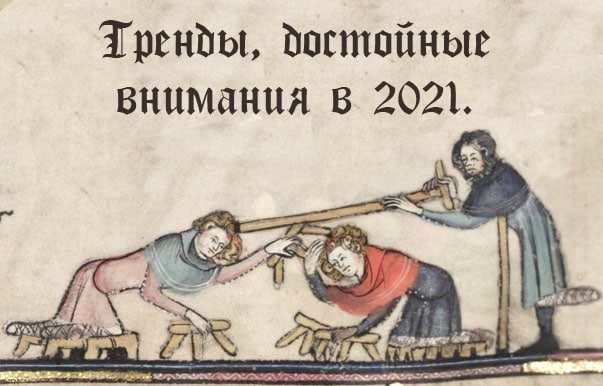 Тренды, достойные
внимания в 2021.